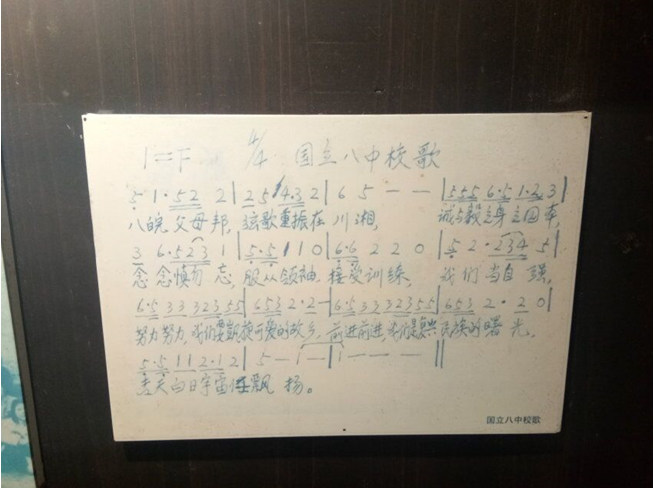 1=F 4/4 国立八中校歌
5 1·5 2 2| 2 5 4·3 2| 6 5 - - |5 5 5 6·5 1·2 3|
八皖父母邦，弦歌重振在川湘，诚与毅立身立国本，
3 6·5 2 3 1 |5·5 1 1 0 |6·6 2 2 0 |5 2·2 3 4 5|
念念慎勿忘，服从领袖，接受训练，我们当自强，
6·5 3 3 3 2 3 5 5 |6 5 3 2·2- |6·5 3 3 3 2 3 5 5 |6 5 3 2·2 0|
努力努力，我们要可爱的故乡，前进前进，我们是民族的曙光，
5·5 1 1 2·1 2 | 5 - 1 - |1 - - - ||
青天白日宇宙飘扬。
国立八中校歌